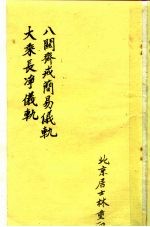 八關齋戒簡易儀軌
大乘長淨儀軌
北京居士林重印